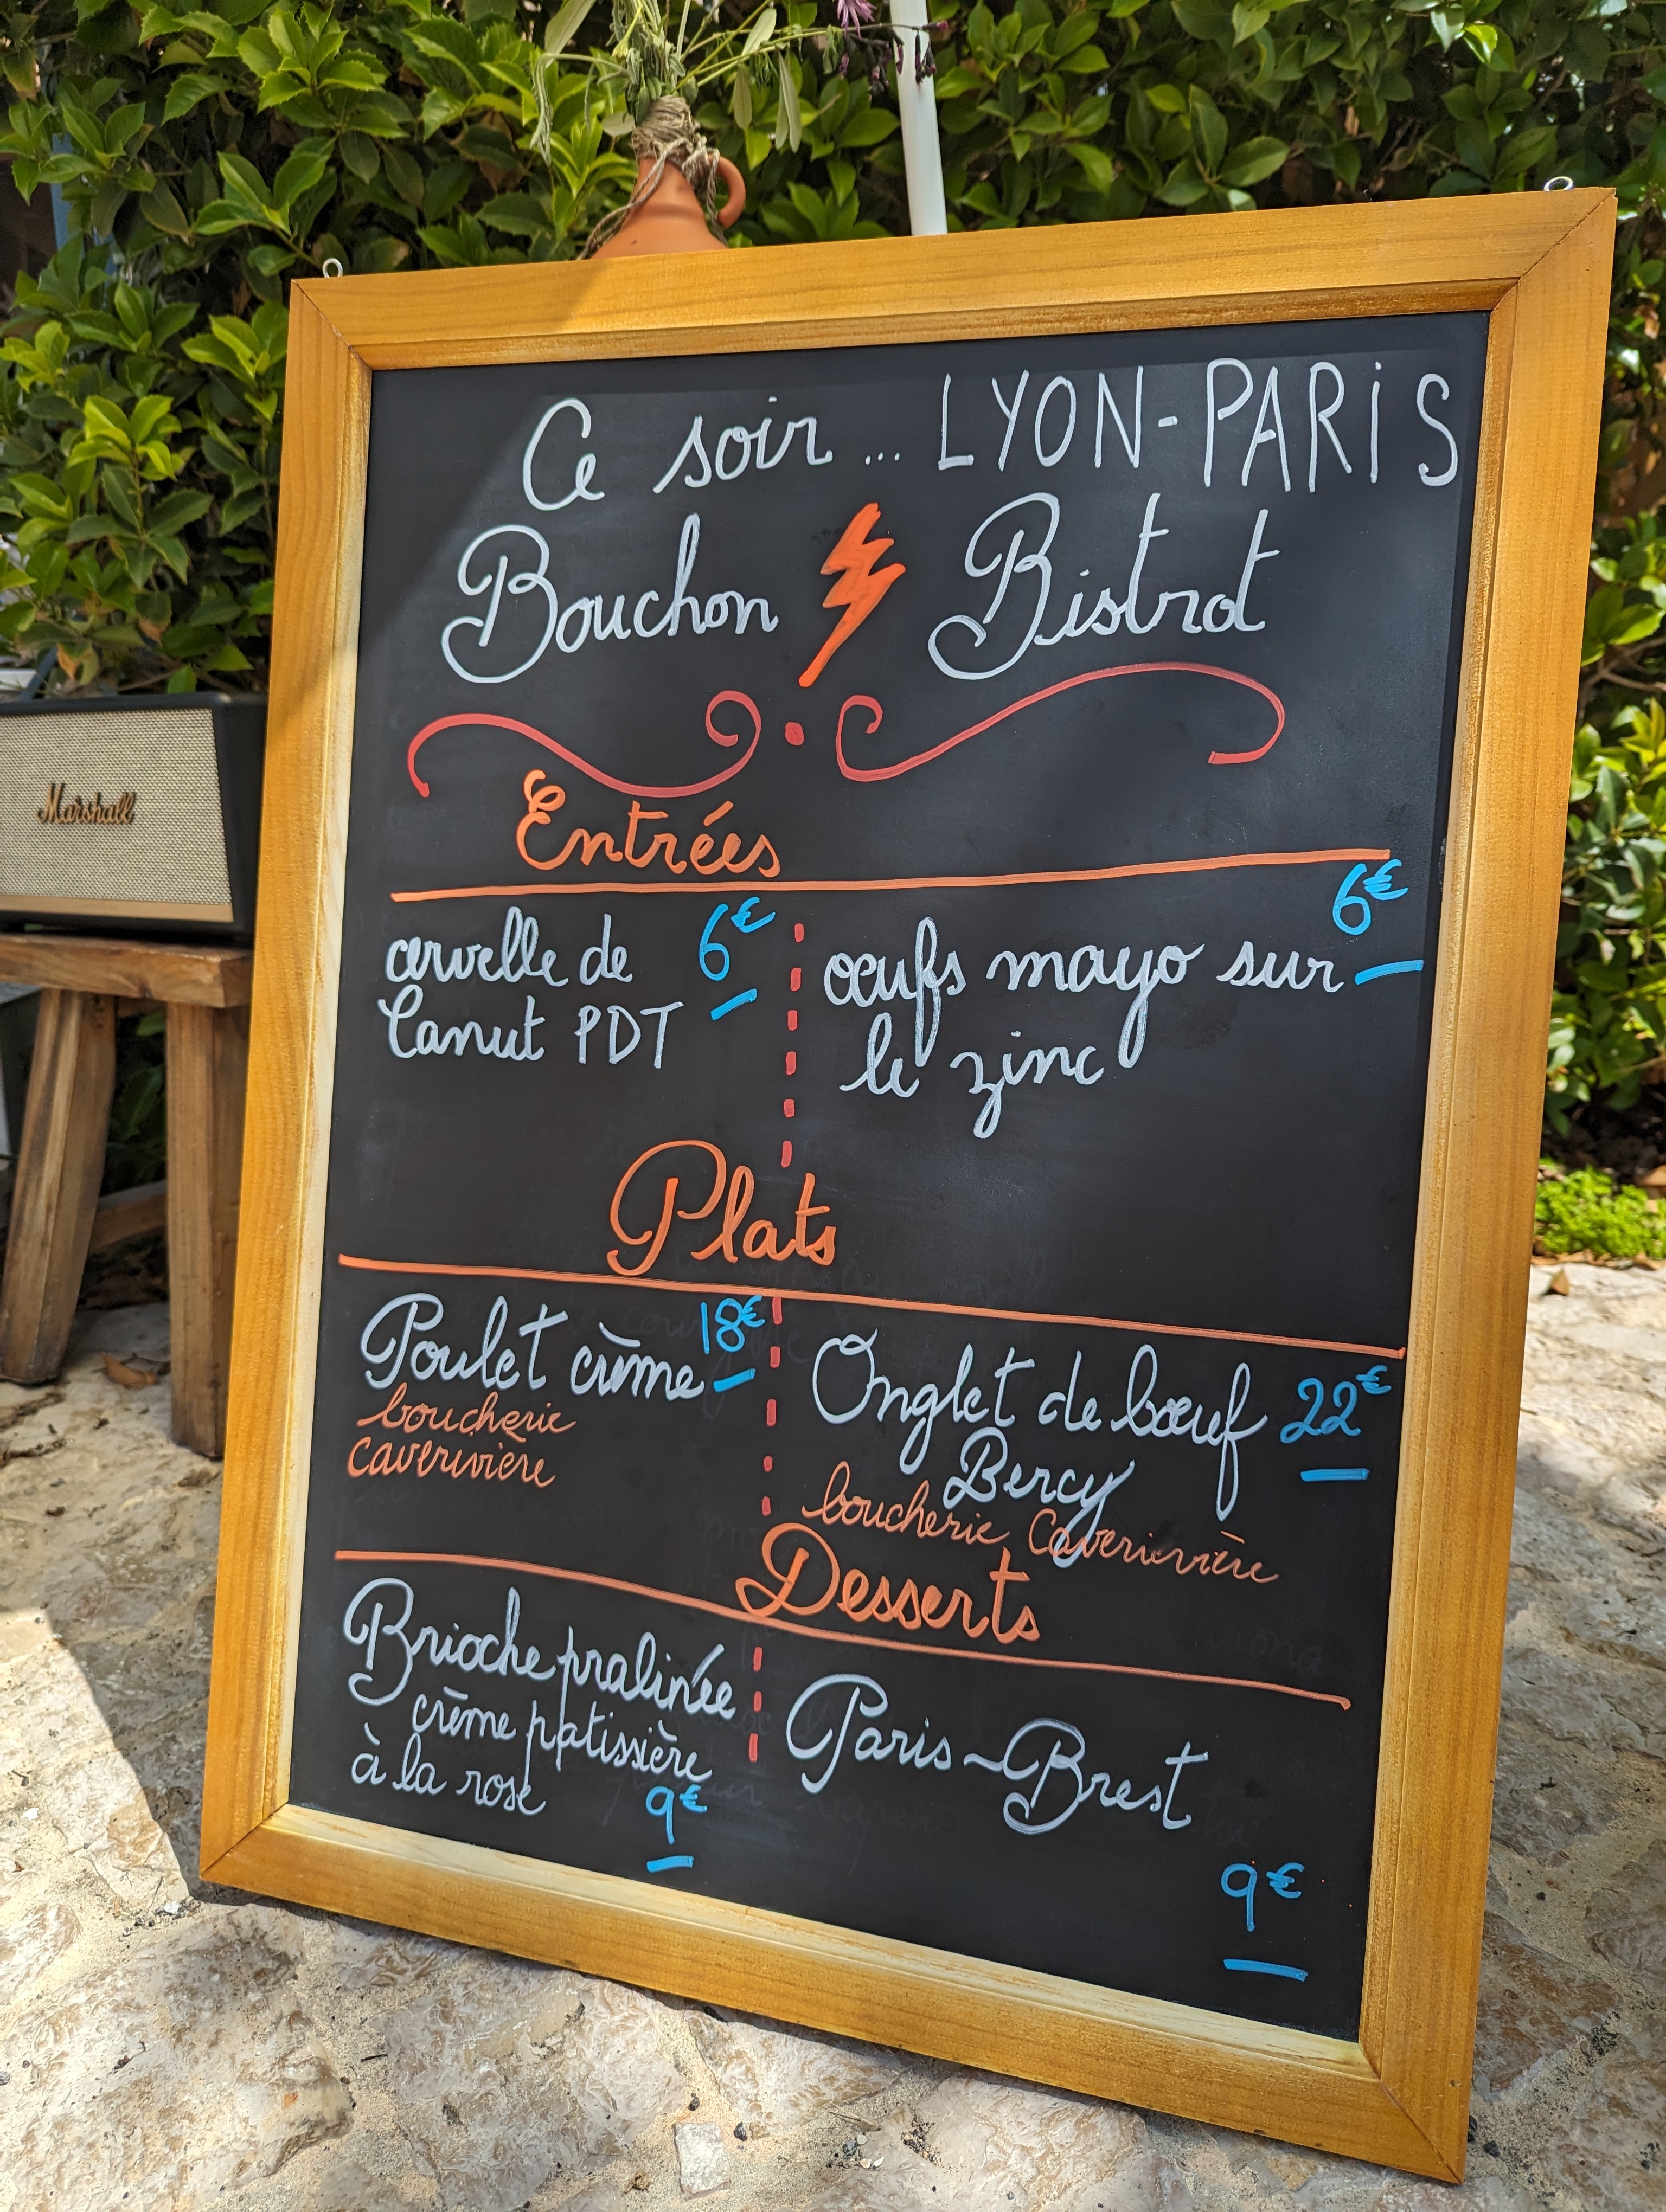 Ce soir ... LYON-PARiS
Bouchon Bistrot
Entrées
cervelle de 6€
Canut PDT
oeufs mayo sur 6€
le zinc
Plats
Poulet crème 18€
boucherie
caverivière
Onglet de bœuf 22€
Bercy
boucherie Caverivière
Desserts
Brioche pralinée
crème patissière
à la rose
9€
Paris-Brest
9€
Marshall